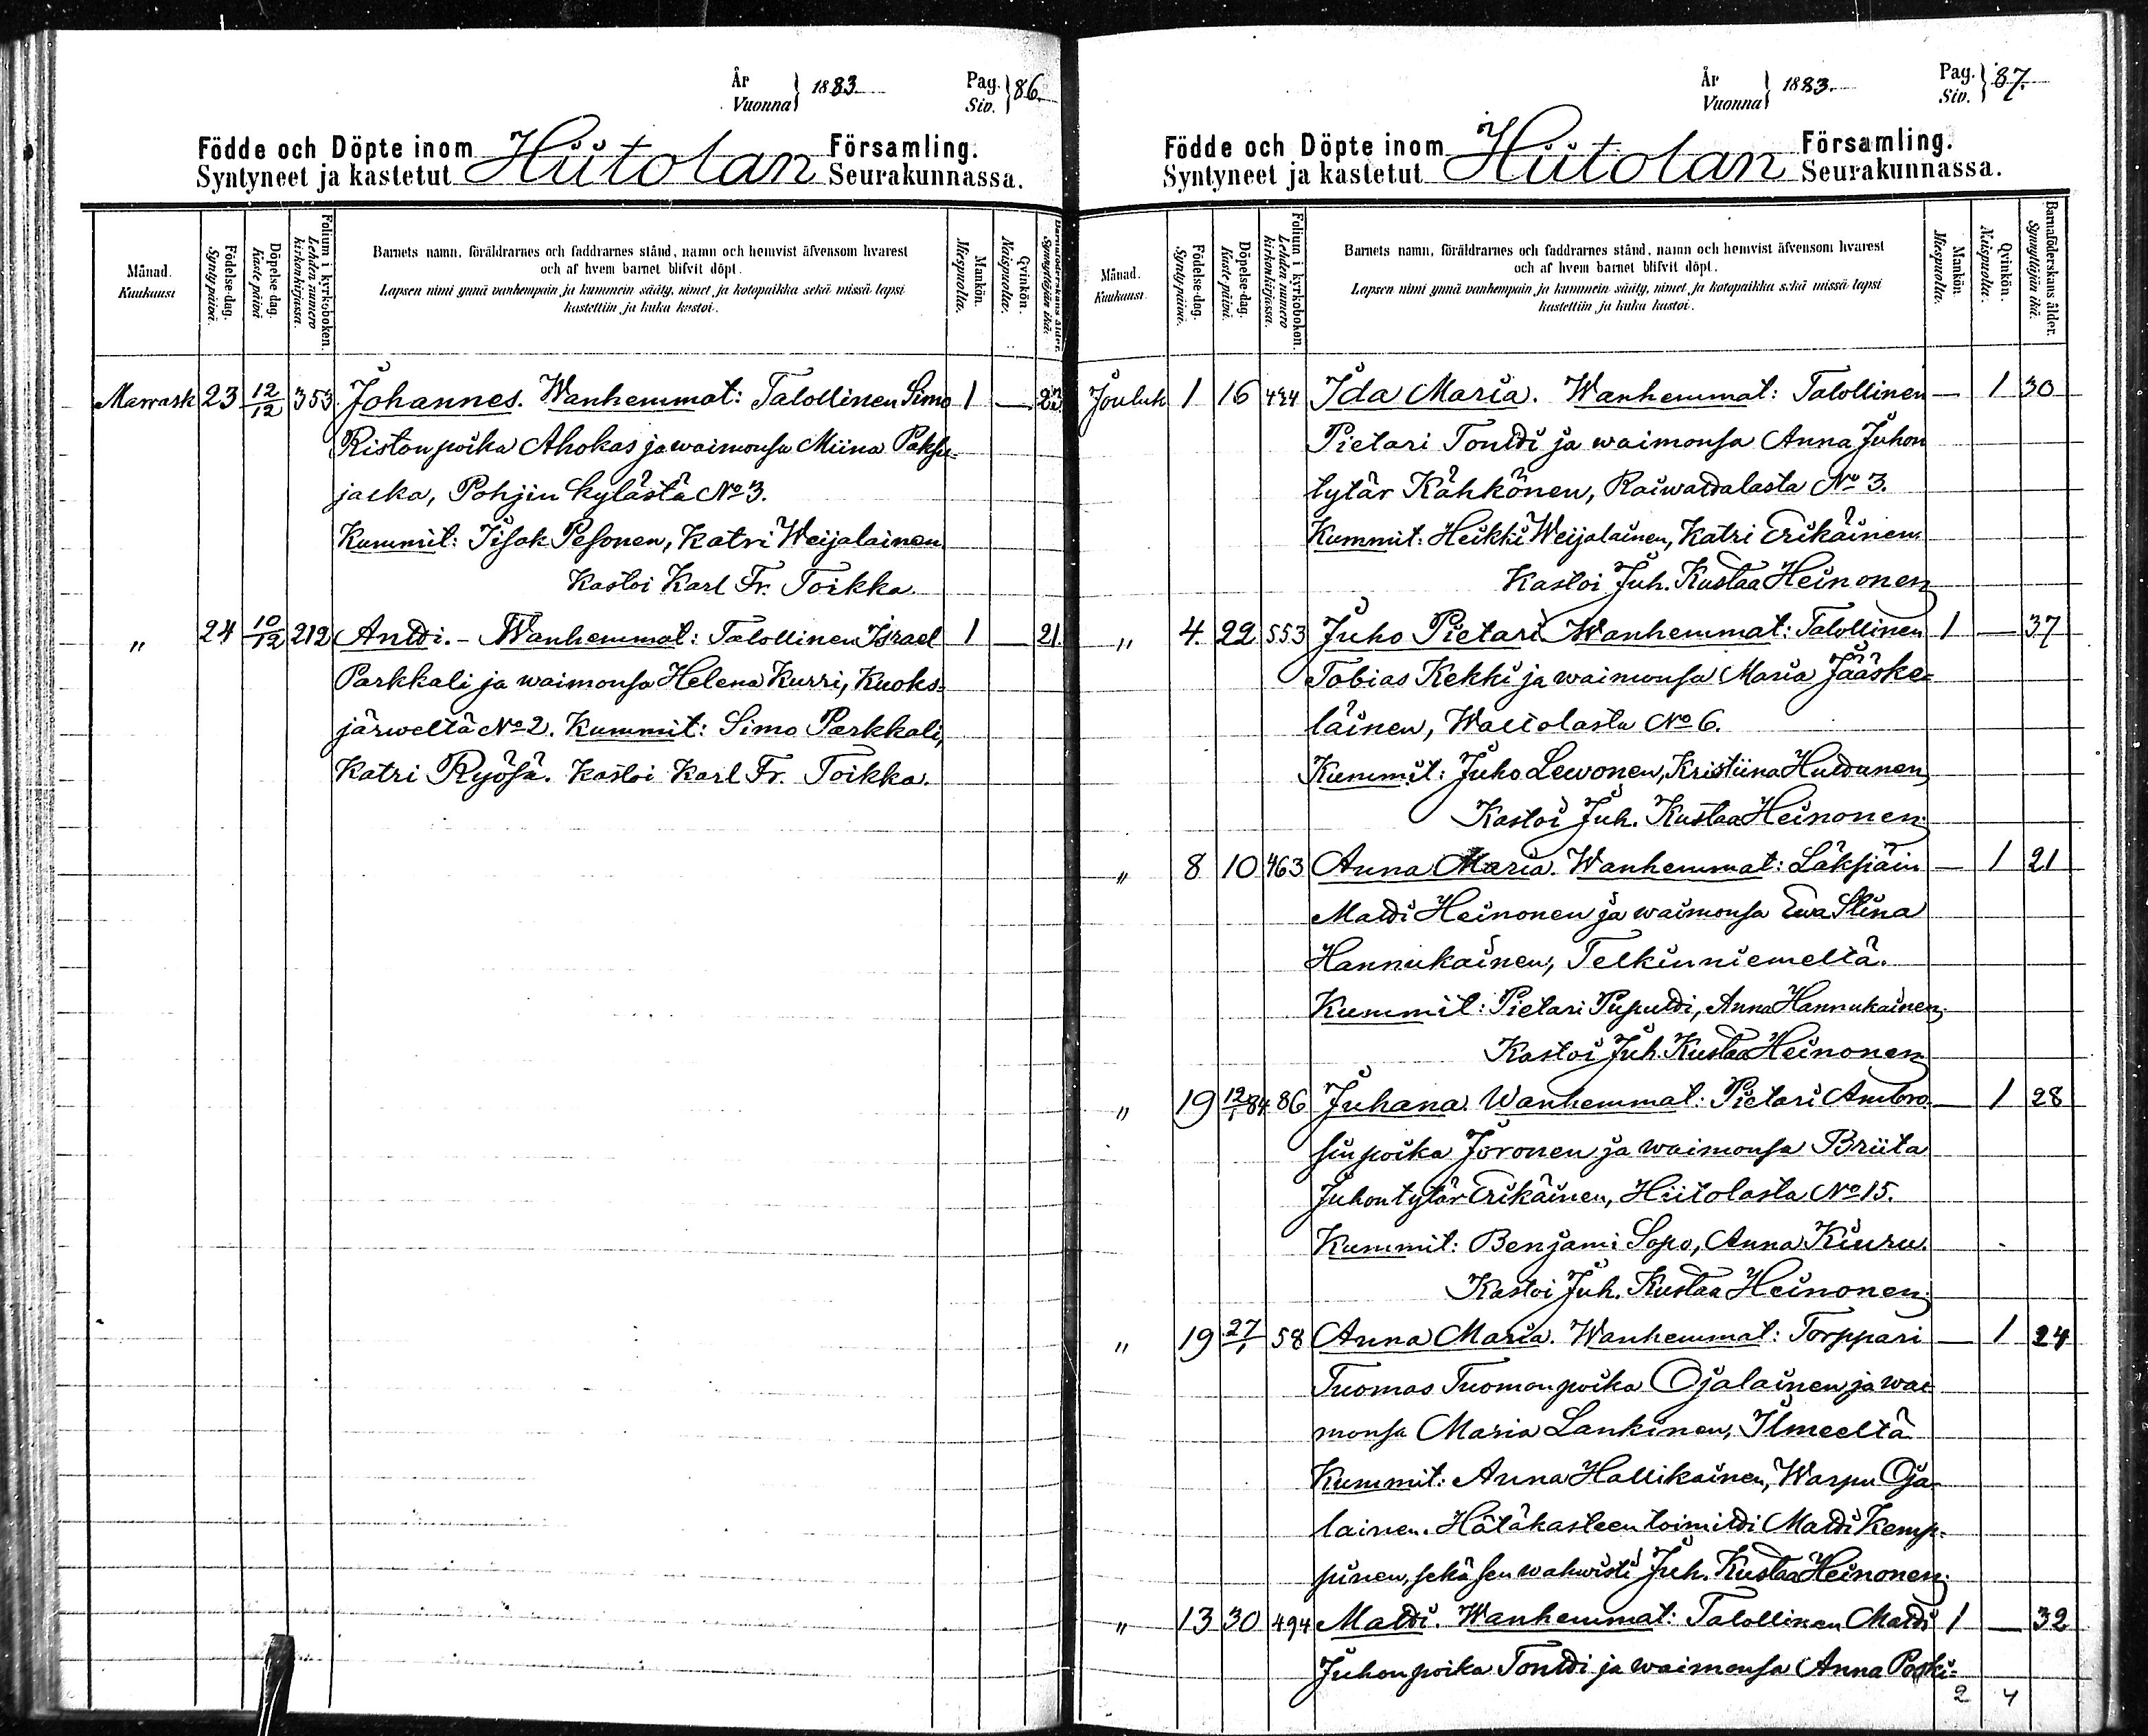 År Vuonna } 1883 Pag. Siv. } 86
Födde och Döpte inom Hiitolan Församling.
Syntyneet ja kastetut Seurakunnassa.
Månad. Kuukausi
Födelse-dag. Syntypäivä.
Döpelse dag. Kaste päivä
Folium i kyrkoboken. Lehden numero kirkonkirjassa.
Barnets namn, föräldrarnes och faddrarnes stånd, namn och hemvist äfvensom hvarest
och af hvem barnet blifvit döpt.
Lapsen nimi ynnä vanhempain ja kummein sääty, nimet ja kotopaikka sekä missä lapsi
kastettiin ja kuka kastoi.
Mankön. Miespuolta.
Qvinkön. Naispuolta.
Barnaföderskans ålder. Synnyttäjän ikä.
Marrask 23 12/12 353 Johannes. Wanhemmat: Talollinen Simo 1 — 23
Ristonpoika Ahokas ja waimonsa Miina Paksu-
jalka, Pohjin kylästä No 3.
Kummit: Iisak Pesonen, Katri Weijalainen.
Kastoi Karl Fr. Toikka.
" 24 10/12 212 Antti. - Wanhemmat: Talollinen Israel 1 — 21.
Parkkali ja waimonsa Helena Kurri, Kuoks-
järweltä No 2. Kummit: Simo Parkkali,
Katri Ryösä. Kastoi Karl Fr. Toikka.
År Vuonna } 1883. Pag. Siv. } 87.
Födde och Döpte inom Hiitolan Församling.
Syntyneet ja kastetut Seurakunnassa.
Månad. Kuukausi
Födelse-dag. Syntypäivä.
Döpelse-dag. Kaste päivä.
Folium i kyrkoboken. Lehden numero kirkonkirjassa.
Barnets namn, föräldrarnes och faddrarnes stånd, namn och hemvist äfvensom hvarest
och af hvem barnet blifvit döpt.
Lapsen nimi ynnä vanhempain ja kummein sääty, nimet ja kotopaikka sekä missä lapsi
kastettiin ja kuka kastoi.
Mankön Miespuolta.
Qvinkön. Naispuolta.
Barnaföderskans ålder. Synnyttäjän ikä.
Jouluk 1 16 Ida Maria. Wanhemmat: Talollinen — 1 30
Pietari Tontti ja waimonsa Anna Juhon
tytär Kähkönen, Raiwattalasta No 3.
Kummit: Heikki Weijalainen, Katri Erikäinen.
Kastoi Juh. Kustaa Heinonen
" 4. 22 553 Juho Pietari. Wanhemmat: Talollinen 1 — 37
Tobias Kekki ja waimonsa Maria Jääske-
läinen, Waliolasta No 6.
Kummit: Juho Lewonen, Kristiina Huttunen,
Kastoi Juh. Kustaa Heinonen.
" 8 10 463 Anna Maria. Wanhemmat: Läksiäin — 1 21
Matti Heinonen ja waimonsa Ewa Stina
Hannukainen, Telkinniemeltä.
Kummit: Pietari Puputti, Anna Hannukainen.
Kastoi Juh. Kustaa Heinonen
" 19 12/1 84 86 Juhana. Wanhemmat: Pietari Ambro- — 1 28
sinpoika Joronen ja waimonsa Briita
Juhontytär Erikäinen, Hiitolasta No 15.
Kummit: Benjami Sopo, Anna Kiuru.
Kastoi Juh. Kustaa Heinonen.
" 19 27/1 58 Anna Maria. Wanhemmat: Torppari — 1 24
Tuomas Tuomonpoika Ojalainen ja wai-
monsa Maria Lankinen, Ilmeeltä
Kummit: Anna Hallikainen, Warpu Oja-
lainen. Hätäkasteen toimitti Matti Kemp-
pinen, sekä sen wahwisti Juh. Kustaa Heinonen.
" 13 30 494 Matti. Wanhemmat: Talollinen Matti 1 — 32
Juhonpoika Tontti ja waimonsa Anna
2 4